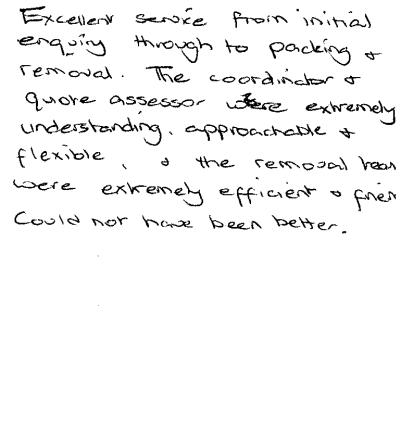 Excellent service from initial
enquiry through to packing &
removal. The coordinator &
quote assessor were extremely
understanding, approachable &
flexible, & the removal team
were extremely efficient &
Could not have been better.